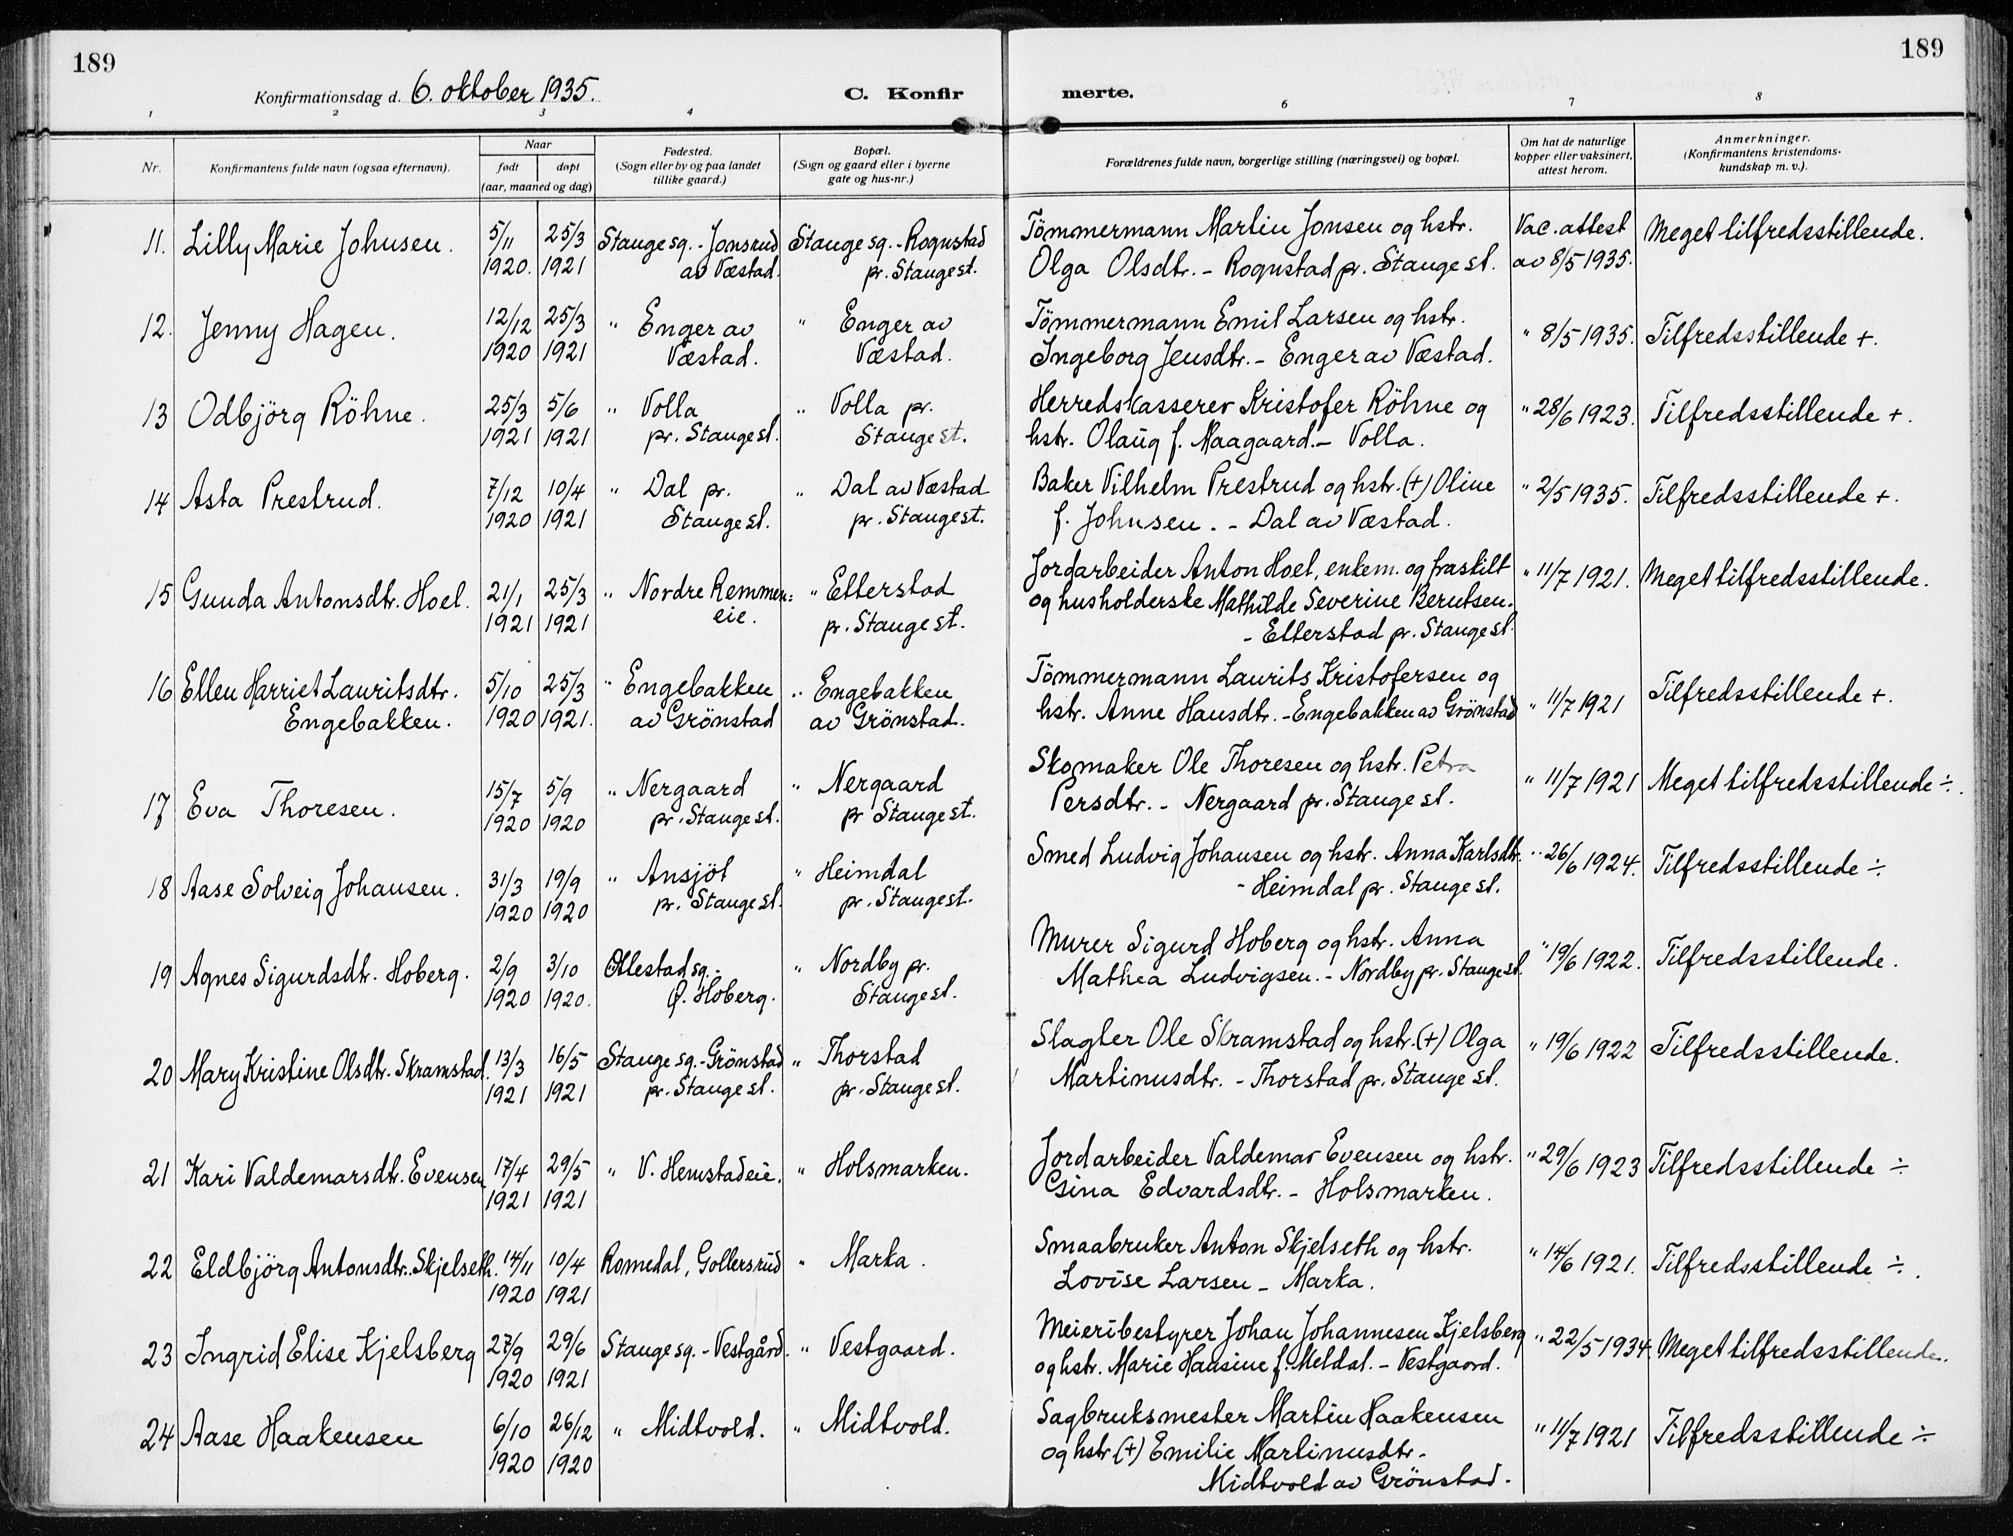 189
189
Konfirmationsdag d. 6. oktober 1935.
C. Konfirmerte.
1 2 3 4 6 7 8
Nr.
Konfirmantens fulde navn (ogsaa efternavn).
Naar
født
døpt
(aar, maaned og dag)
Fødested.
(Sogn eller by og paa landet
tillike gaard.)
Bopæl.
(Sogn og gaard eller i byerne
gate og hus-nr.)
Forældrenes fulde navn, borgerlige stilling (næringsvei) og bopæl.
Om hat de naturlige
kopper eller vaksinert,
attest herom.
Anmerkninger.
(Konfirmantens kristendoms-
kundskap m. v.).
11. Lilly Marie Johnsen. 5/11 25/3 Stange sg. - Jonsrud Stange sg. - Rognstad Tömmermann Martin Jonsen og hstr. Vac. attest Meget tilfredsstillende.
1920. 1921 av Væstad. pr. Stange st. Olga Olsdtr. - Rognstad pr. Stange st. av 8/5 1935.
12. Jenny Hagen. 12/12 25/3 " Enger av " Enger av Tömmermann Emil Larsen og hstr. " 8/5 1935. Tilfredsstillende +.
1920 1921 Væstad. Væstad. Ingeborg Jensdtr. - Enger av Væstad.
13 Odbjörg Röhne. 25/3 5/6 " Volla " Volla pr. Herredskasserer Kristofer Röhne og " 28/6 1923. Tilfredsstillende +.
1921 1921 pr. Stange st. Stange st. hstr. Olaug f. Naagaard. - Volla.
14 Asta Prestrud. 7/12 10/4 " Dal pr. " Dal av Væstad Baker Vilhelm Prestrud og hstr. (+) Oline " 2/5 1935. Tilfredsstillende +.
1920 1921 Stange st. pr. Stange st. f. Johnsen. - Dal av Væstad.
15 Gunda Antonsdtr. Hoel. 21/1 25/3 " Nordre Remmen= " Etterstad Jordarbeider Anton Hoel, enkem. og fraskilt " 11/7 1921. Meget tilfredsstillende.
1921 1921 eie. pr. Stange st. og husholderske Mathilde Severine Berntsen.
- Etterstad pr. Stange st.
16 Ellen Harriet Lauritsdtr. 5/10 25/3 " Engebakken " Engebakken Tömmermann Laurits Kristofersen og " 11/7 1921 Tilfredsstillende +.
Engebakken. 1920 1921. av Grönstad av Grönstad. hstr. Anne Hansdtr. - Engebakken av Grönstad
17 Eva Thoresen. 15/7 5/9 " Nergaard " Nergaard Skomaker Ole Thoresen og hstr. Petra " 11/7 1921 Meget tilfredsstillende ÷.
1920 1920 pr. Stange st. pr Stange st. Persdtr. - Nergaard pr. Stange st.
18 Aase Solveig Johansen. 31/3 19/9 " Ansjöt " Heimdal Smed Ludvig Johansen og hstr. Anna Karlsdtr. " 26/6 1924. Tilfredsstillende ÷
1920 1920 pr. Stange st. pr. Stange st. - Heimdal pr. Stange st.
19 Agnes Sigurdsdtr. Hoberg. 2/9 3/10 Ottestad sg. - " Nordby pr. Murer Sigurd Hoberg og hstr. Anna " 19/6 1922. Tilfredsstillende.
1920 1920. Ø. Hoberg. Stange st. Mathea Ludvigsen. - Nordby pr. Stange st.
20 Mary Kristine Olsdtr. Skramstad. 13/3 16/5 Stange sg. - Grönstad " Thorstad Slagter Ole Skramstad og hstr. (+) Olga " 19/6 1922 Tilfredsstillende.
1921 1921 pr. Stange st. pr. Stange st. Martinusdtr. - Thorstad pr. Stange st.
21 Kari Valdemarsdtr. Evensen 17/4 29/5 " V. Hemstadeie. " Holsmarken. Jordarbeider Valdemar Evensen og hstr. " 29/6 1923 Tilfredsstillende ÷
1921 1921 Gina Edvardsdtr. - Holsmarken.
22 Eldbjörg Antonsdtr. Skjelseth. 14/11 10/4 Romedal, Gollersrud " Marka. Smaabruker Anton Skjelseth og hstr. " 14/6 1921. Tilfredsstillende ÷.
1920 1921 Lovise Larsen - Marka.
23 Ingrid Elise Kjelsberg 27/9 29/6 Stange sg. - Vestgård. " Vestgaard. Meieribestyrer Johan Johannesen Kjelsberg " 22/5 1934. Meget tilfredsstillende.
1920 1921 og hstr. Marie Hansine f. Meldal. - Vestgaard.
24 Aase Haakensen 6/10 26/12 " Midtvold. " Midtvold. Sagbruksmester Martin Haakensen " 11/7 1921 Tilfredsstillende ÷
1920 1920 og hstr (+) Emilie Martinusdtr -
Midtvold av Grönstad.